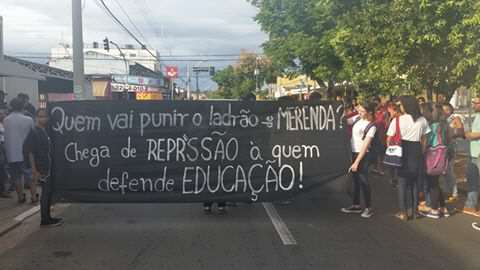 Quem vai punir o ladrão de MERENDA?
Chega de REPRESSÃO à quem
defende EDUCAÇÃO!